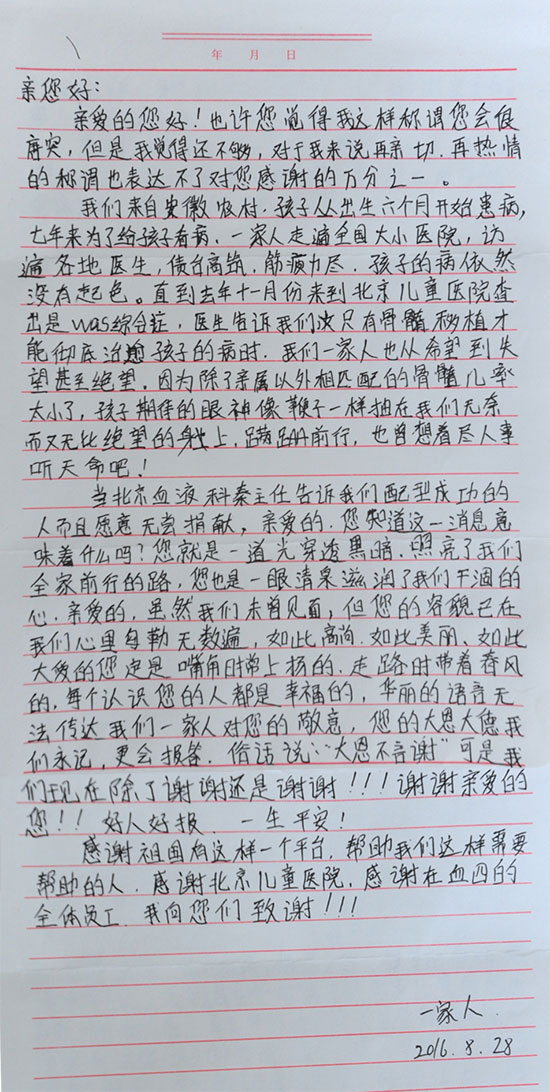 年 月 日
亲您好:
亲爱的您好!也许您觉得我这样称谓您会很
唐突,但是我觉得还不够,对于我来说再亲切、再热情
的称谓也表达不了对您感谢的万分之一。
我们来自安徽农村,孩子从出生六个月开始患病,
七年来为了给孩子看病,一家人走遍全国大小医院,访
遍各地医生,债台高筑,筋疲力尽,孩子的病依然
没有起色。直到去年十一月份来到北京儿童医院查
出是was综合症,医生告诉我们说只有骨髓移植才
能彻底治愈孩子的病时,我们一家人也从希望到失
望甚至绝望,因为除了亲属以外相匹配的骨髓几率
太小了,孩子期待的眼神像鞭子一样抽在我们无奈
而又无比绝望的身上,蹒跚前行,也曾想着尽人事
听天命吧!
当北京血液科秦主任告诉我们配型成功的
人而且愿意无尝捐献,亲爱的,您知道这一消息意
味着什么吗?您就是一道光穿透黑暗,照亮了我们
全家前行的路,您也是一眼清泉滋润了我们干涸的
心,亲爱的,虽然我们未曾见面,但您的容貌已在
我们心里勾勒无数遍,如此高尚、如此美丽、如此
大爱的您定是嘴角时常上扬的,走路时带着春风
的,每个认识您的人都是幸福的,华丽的语言无
法传达我们一家人对您的敬意,您的大恩大德我
们永记,更会报答,俗话说:“大恩不言谢”可是我
们现在除了谢谢还是谢谢!!!谢谢亲爱的
您!!好人好报,一生平安!
感谢祖国有这样一个平台,帮助我们这样需要
帮助的人,感谢北京儿童医院,感谢在血四的
全体员工,我向您们致谢!!!
一家人.
2016.8.28